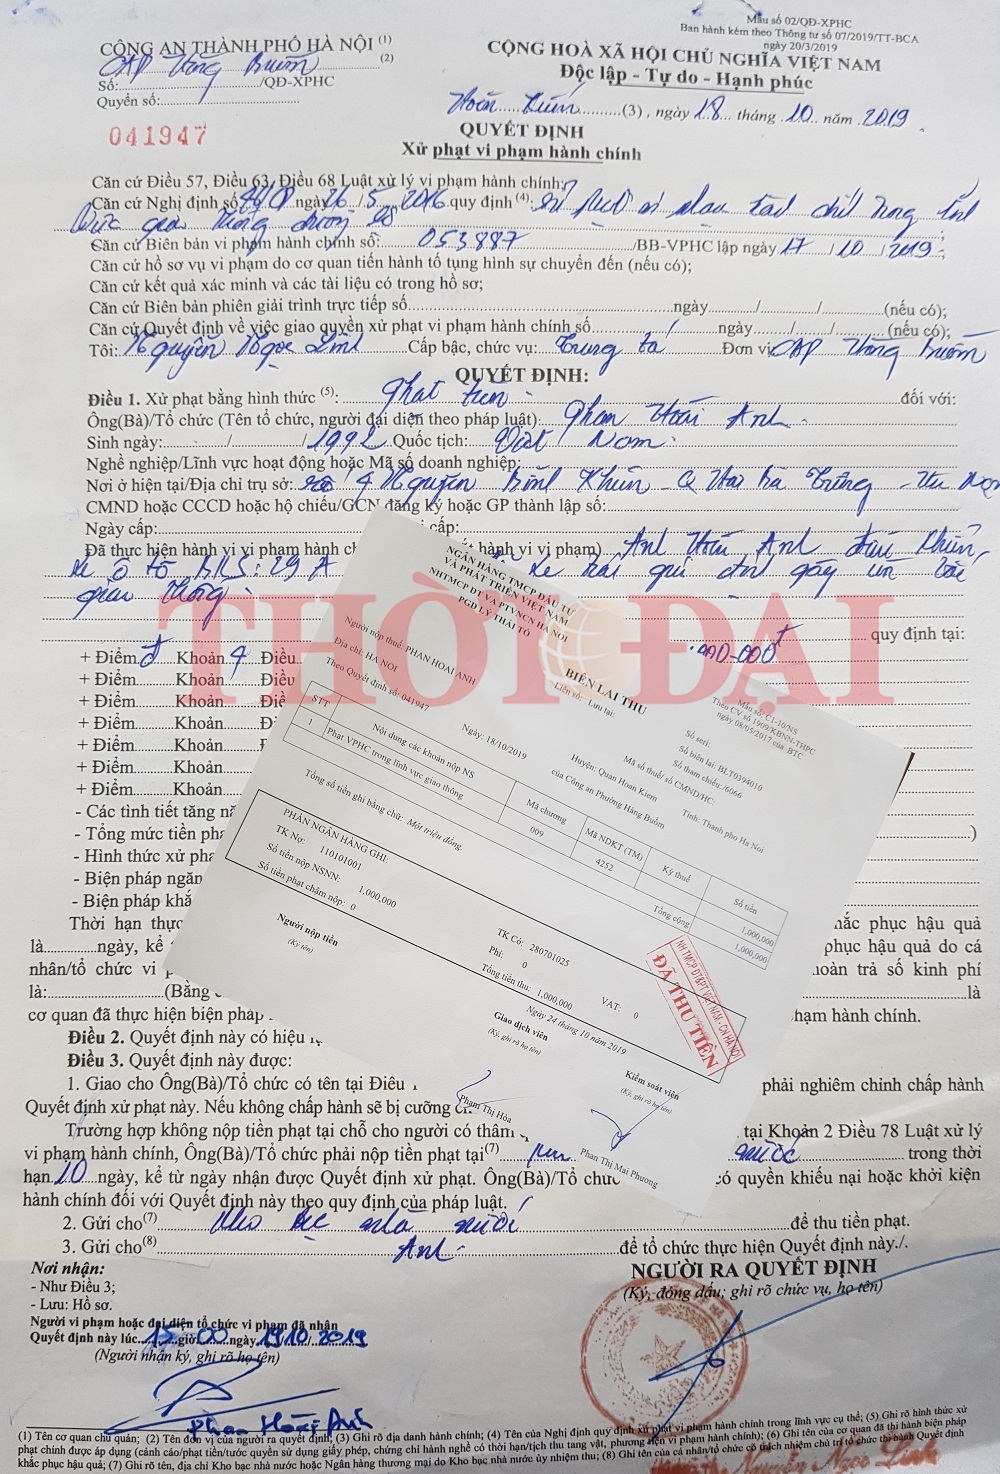 Mẫu số 02/QĐ-XPHC
Ban hành kèm theo Thông tư số 07/2019/TT-BCA
ngày 20/3/2019
CÔNG AN THÀNH PHỐ HÀ NỘI (1)
CAP Hàng Buồm (2)
Số: /QĐ-XPHC
Quyển số:
041947
CỘNG HOÀ XÃ HỘI CHỦ NGHĨA VIỆT NAM
Độc lập - Tự do - Hạnh phúc
Hoàn Kiếm (3), ngày 18 tháng 10 năm 2019
QUYẾT ĐỊNH
Xử phạt vi phạm hành chính
Căn cứ Điều 57, Điều 63, Điều 68 Luật xử lý vi phạm hành chính;
Căn cứ Nghị định số 46/CP ngày 26/5/2016 quy định (4)
vực giao thông đường bộ
Căn cứ Biên bản vi phạm hành chính số: 053887 /BB-VPHC lập ngày 17/10/2019
Căn cứ hồ sơ vụ vi phạm do cơ quan tiến hành tố tụng hình sự chuyển đến (nếu có);
Căn cứ kết quả xác minh và các tài liệu có trong hồ sơ;
Căn cứ Biên bản phiên giải trình trực tiếp số ngày / / (nếu có);
Căn cứ Quyết định về việc giao quyền xử phạt vi phạm hành chính số ngày / / (nếu có);
Tôi: Nguyễn Ngọc Linh Cấp bậc, chức vụ: Trung tá Đơn vị: CAP Hàng Buồm
QUYẾT ĐỊNH:
Điều 1. Xử phạt bằng hình thức (5): Phạt tiền đối với:
Ông(Bà)/Tổ chức (Tên tổ chức, người đại diện theo pháp luật): Phan Hoài Anh
Sinh ngày: / /1992 Quốc tịch: Việt Nam
Nghề nghiệp/Lĩnh vực hoạt động hoặc Mã số doanh nghiệp:
Nơi ở hiện tại/Địa chỉ trụ sở: số 4 Nguyễn Bỉnh Khiêm - Q Hai Bà Trưng - Hà Nội
CMND hoặc CCCD hoặc hộ chiếu/GCN đăng ký hoặc GP thành lập số:
Ngày cấp: cấp:
Đã thực hiện hành vi vi phạm hành ch hành vi vi phạm) Anh Hoài Anh điều khiển
xe ô tô BKS: 29A xe
giao thông
THỜI ĐẠI
quy định tại:
+ Điểm đ Khoản 4 Điều
+ Điểm Khoản Điều
+ Điểm Khoản Điề
+ Điểm Khoản Đi
+ Điểm Khoản Đ
+ Điểm Khoản
+ Điểm Khoản
- Các tình tiết tăng n
- Tổng mức tiền phạ )
- Hình thức xử phạ
- Biện pháp ngăn
- Biện pháp khắ
Thời hạn thực hắc phục hậu quả
là ngày, kể phục hậu quả do cá
nhân/tổ chức vi p hoàn trả số kinh phí
là: (Bằng là
cơ quan đã thực hiện biện pháp hạm hành chính.
NGÂN HÀNG TMCP ĐẦU TƯ
VÀ PHÁT TRIỂN VIỆT NAM
NHTMCP ĐT VA PTVNCN HÀ NỘI
PGD LÝ THÁI TỔ
BIÊN LAI THU
Liên số: Lưu tại:
Mẫu số: C1-10/NS
Theo CV số 1909/KBNN-THPC
ngày 08/05/2017 của BTC
Số seri:
Số biên lai: BLT0394010
Số tham chiếu: /6066
Người nộp thuế: PHAN HOAI ANH
Mã số thuế/ số CMND/HC:
Địa chỉ: HA NOI
Huyện: Quan Hoan Kiem Tỉnh: Thanh pho Ha Noi
Theo Quyết định số: 041947 Ngày: 18/10/2019 của Công an Phường Hàng Buồm
STT Nội dung các khoản nộp NS Mã chương Mã NDKT (TM) Kỳ thuế Số tiền
1 Phạt VPHC trong lĩnh vực giao thông 009 4252 1,000,000
Tổng cộng 1,000,000
Tổng số tiền ghi bằng chữ: Một triệu đồng
PHẦN NGÂN HÀNG GHI:
TK Nợ: 110101001 TK Có: 280701025
Số tiền nộp NSNN: 1,000,000 Phí: 0 VAT: 0
Số tiền phạt chậm nộp: 0 Tổng tiền thu: 1,000,000
NH TMCP ĐT&PT VIỆT NAM - CN HÀ NỘI
ĐÃ THU TIỀN
Ngày 24 tháng 10 năm 2019
Người nộp tiền Giao dịch viên Kiểm soát viên
(Ký tên) (Ký, ghi rõ họ tên) (Ký, ghi rõ họ tên)
Phạm Thị Hòa
Phan Thị Mai Phương
Điều 2. Quyết định này có hiệu
Điều 3. Quyết định này được:
1. Giao cho Ông(Bà)/Tổ chức có tên tại Điều 1 phải nghiêm chỉnh chấp hành
Quyết định xử phạt này. Nếu không chấp hành sẽ bị cưỡng
Trường hợp không nộp tiền phạt tại chỗ cho người có thẩm tại Khoản 2 Điều 78 Luật xử lý
vi phạm hành chính, Ông(Bà)/Tổ chức phải nộp tiền phạt tại(7) nước trong thời
hạn 10 ngày, kể từ ngày nhận được Quyết định xử phạt. Ông(Bà)/Tổ chức có quyền khiếu nại hoặc khởi kiện
hành chính đối với Quyết định này theo quy định của pháp luật.
2. Gửi cho(7) Kho bạc nhà nước để thu tiền phạt.
3. Gửi cho(8) Anh để tổ chức thực hiện Quyết định này./.
Nơi nhận:
- Như Điều 3;
- Lưu: Hồ sơ.
NGƯỜI RA QUYẾT ĐỊNH
(Ký, đóng dấu; ghi rõ chức vụ, họ tên)
Người vi phạm hoặc đại diện tổ chức vi phạm đã nhận
Quyết định này lúc 15 giờ 00 ngày 19/10/2019
(Người nhận ký, ghi rõ họ tên)
Phan Hoài Anh
Nguyễn Ngọc Linh
(1) Tên cơ quan chủ quản; (2) Tên đơn vị của người ra quyết định; (3) Ghi rõ địa danh hành chính; (4) Tên của Nghị định quy định xử phạt vi phạm hành chính trong lĩnh vực cụ thể; (5) Ghi rõ hình thức xử
phạt chính được áp dụng (cảnh cáo/phạt tiền/tước quyền sử dụng giấy phép, chứng chỉ hành nghề có thời hạn/tịch thu tang vật, phương tiện vi phạm hành chính); (6) Ghi tên của cơ quan đã thi hành biện pháp
khắc phục hậu quả; (7) Ghi rõ tên, địa chỉ Kho bạc nhà nước hoặc Ngân hàng thương mại do Kho bạc nhà nước ủy nhiệm thu; (8) Ghi tên của cá nhân/tổ chức có trách nhiệm chủ trì tổ chức thi hành Quyết định